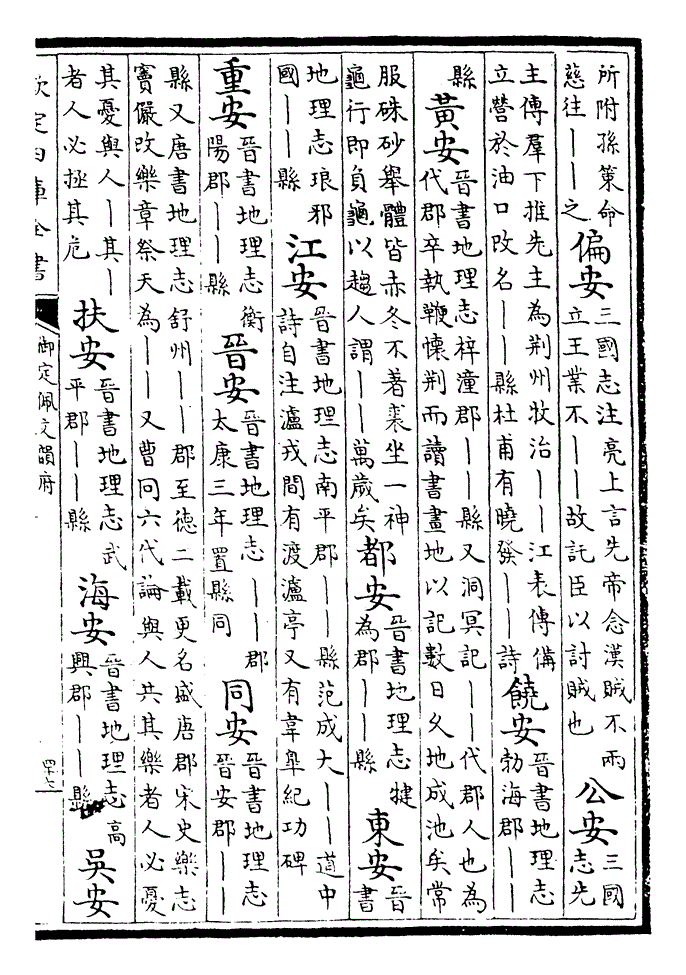 所附孫策命慈往——之偏安三國志注亮上言先帝念漢賊不兩立王業不——故託臣以討賊也公安三國志先
主傳羣下推先主為荆州牧治——江表傳備立營於油口改名——縣杜甫有曉發——詩饒安晉書地理志勃海郡——
縣黃安晉書地理志梓潼郡——縣又洞冥記——代郡人也為代郡卒執鞭懷荆而讀書畫地以記數日乆地成池矣常
服硃砂舉體皆赤冬不著裘坐一神龜行即負龜以趨人謂——萬歳矣都安晉書地理志犍為郡——縣東安晉書
地理志琅邪國——縣江安晉書地理志南平郡——縣范成大——道中詩自注瀘戎間有渡瀘亭又有韋臯紀功碑
重安晉書地理志衡陽郡——縣晉安晉書地理志——郡太康三年置縣同同安晉書地理志晉安郡——
縣又唐書地理志舒州——郡至德二載更名盛唐郡宋史樂志竇儼改樂章祭天為——又曹冏六代論與人共其樂者人必憂
其憂與人—其—者人必拯其危扶安晉書地理志武平郡——縣海安晉書地理志高興郡——縣吳安
欽定四庫全書
御定佩文韻府
四十七